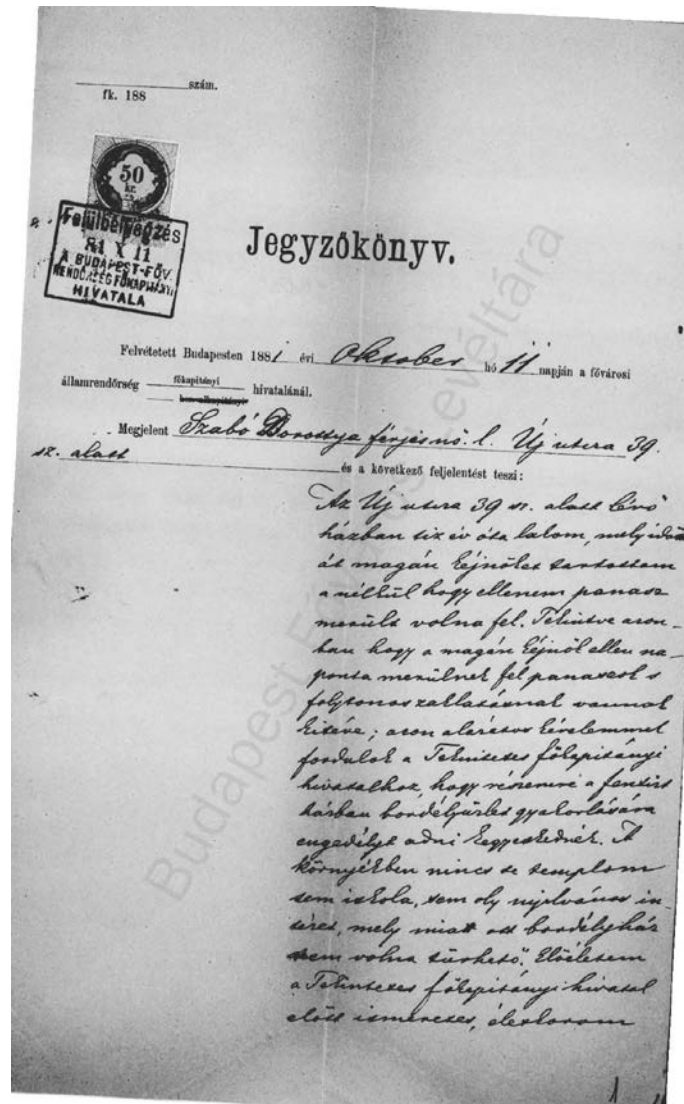 szám.
fk. 188
50
kr.
Felülbélyegzés
81 X 11
A BUDAPEST-FŐV.
RENDŐRSÉG FŐKAPITÁNYI
HIVATALA
Jegyzőkönyv.
Felvétetett Budapesten 1881 évi Oktober hó 11 napján a fővárosi
államrendőrség főkapitányi hivatalánál.
Megjelent Szabó Dorottya férjes nő. l. Új utcza 39.
sz. alatt és a következő feljelentést teszi:
Az Új utcza 39 sz. alatt lévő
házban tiz év óta lakom, mely idő
át magán kéjnőket tartottam
a nélkül hogy ellenem panasz
merült volna fel. Tekintve azon-
ban hogy a magán kéjnők ellen na-
ponta merülnek fel panaszok s
folytonos zaklatásnak vannak
kitéve; azon alázatos kérelemmel
fordulok a Tekintetes főkapitányi
hivatalhoz, hogy részemre a fentirt
házban bordélyüzlet gyakorlására
engedélyt adni kegyeskednék. A
környékben nincs se templom
sem iskola, sem oly nyilvános in-
tézet, mely miatt ott bordélyház
nem volna türhető. Előéletem
a Tekintetes főkapitányi hivatal
előtt ismeretes, életkorom
Budapest Főváros Levéltára